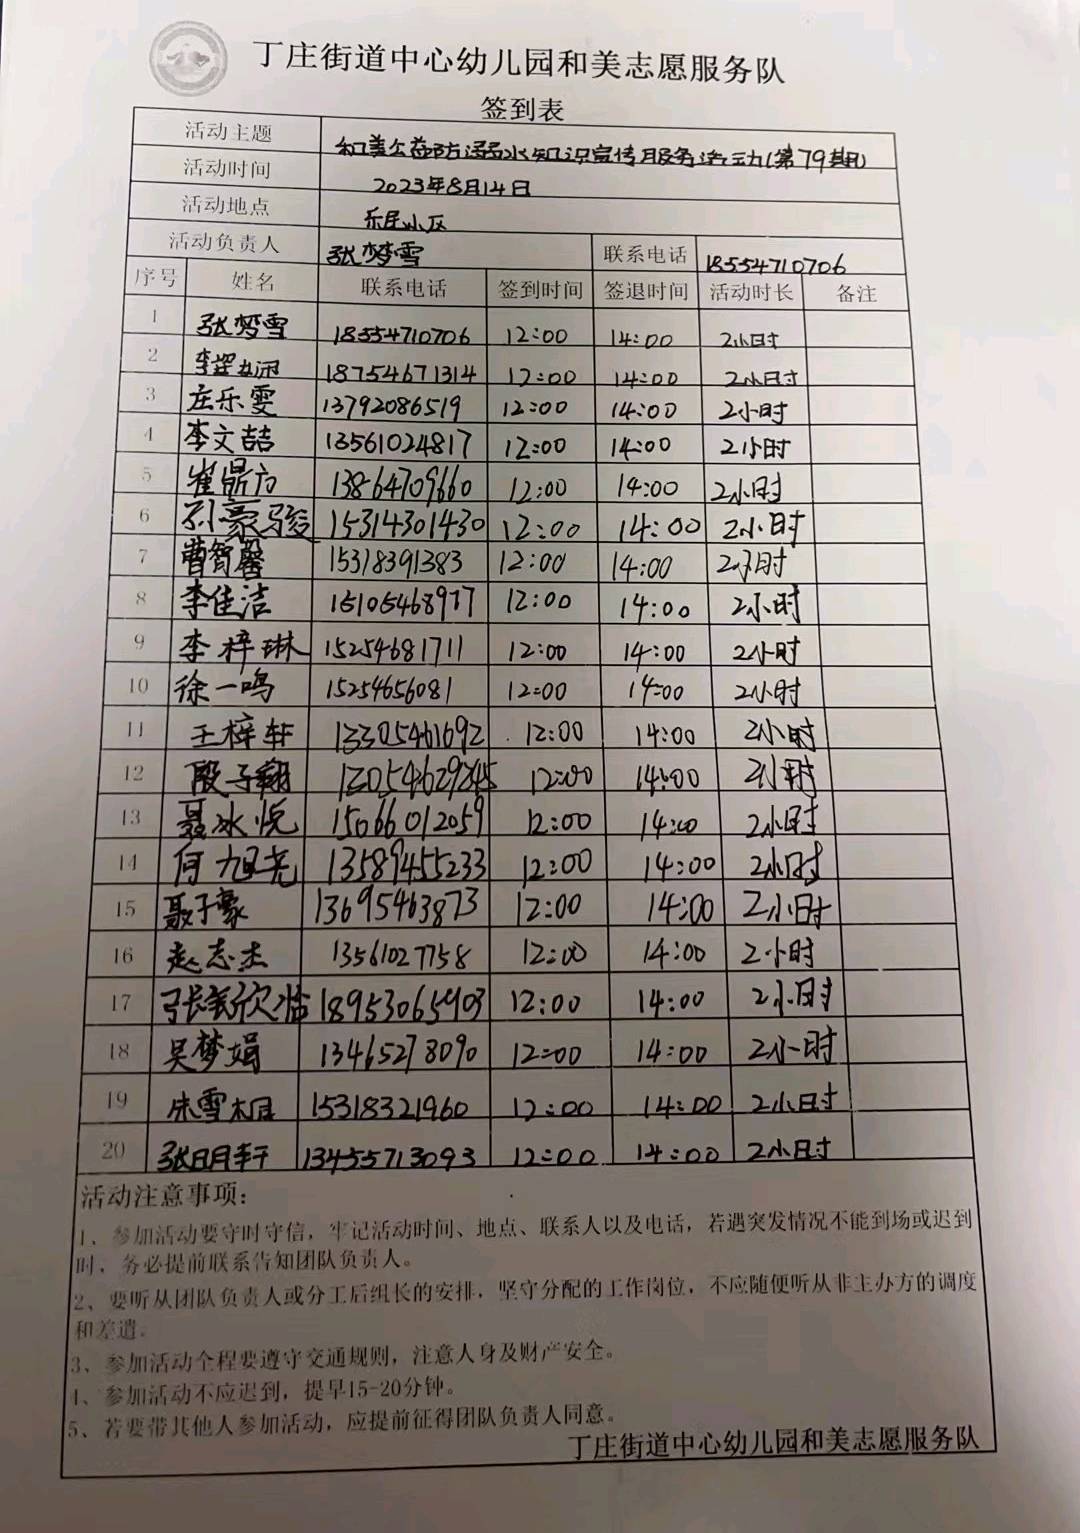 丁庄街道中心幼儿园和美志愿服务队
签到表
活动主题 和美公益防溺水知识宣传服务活动(第79期)
活动时间 2023年8月14日
活动地点 乐民小区
活动负责人 张梦雪 联系电话 18554710706
序号 姓名 联系电话 签到时间 签退时间 活动时长 备注
1 张梦雪 18554710706 12:00 14:00 2小时
2 18754671314 12:00 14:00 2小时
3 庄乐雯 13792086519 12:00 14:00 2小时
4 李文喆 13561024817 12:00 14:00 2小时
5 崔鼎方 13864709660 12:00 14:00 2小时
6 孙豪骏 15314301430 12:00 14:00 2小时
7 曹智馨 15318391383 12:00 14:00 2小时
8 李佳洁 15105468977 12:00 14:00 2小时
9 李梓琳 15254681711 12:00 14:00 2小时
10 徐一鸣 15254656081 12:00 14:00 2小时
11 王梓轩 13305461692 12:00 14:00 2小时
12 段子翔 12:00 14:00 2小时
13 聂冰悦 15066012059 12:00 14:00 2小时
14 何旭尧 13589455233 12:00 14:00 2小时
15 聂子豪 13695463873 12:00 14:00 2小时
16 赵志杰 13561027758 12:00 14:00 2小时
17 18953065903 12:00 14:00 2小时
18 吴梦娟 13465278090 12:00 14:00 2小时
19 朱雪桐 15318321960 12:00 14:00 2小时
20 张明轩 13455713093 12:00 14:00 2小时
活动注意事项：
1、参加活动要守时守信，牢记活动时间、地点、联系人以及电话，若遇突发情况不能到场或迟到
时，务必提前联系告知团队负责人。
2、要听从团队负责人或分工后组长的安排，坚守分配的工作岗位，不应随便听从非主办方的调度
和差遣。
3、参加活动全程要遵守交通规则，注意人身及财产安全。
4、参加活动不应迟到，提早15-20分钟。
5、若要带其他人参加活动，应提前征得团队负责人同意。
丁庄街道中心幼儿园和美志愿服务队